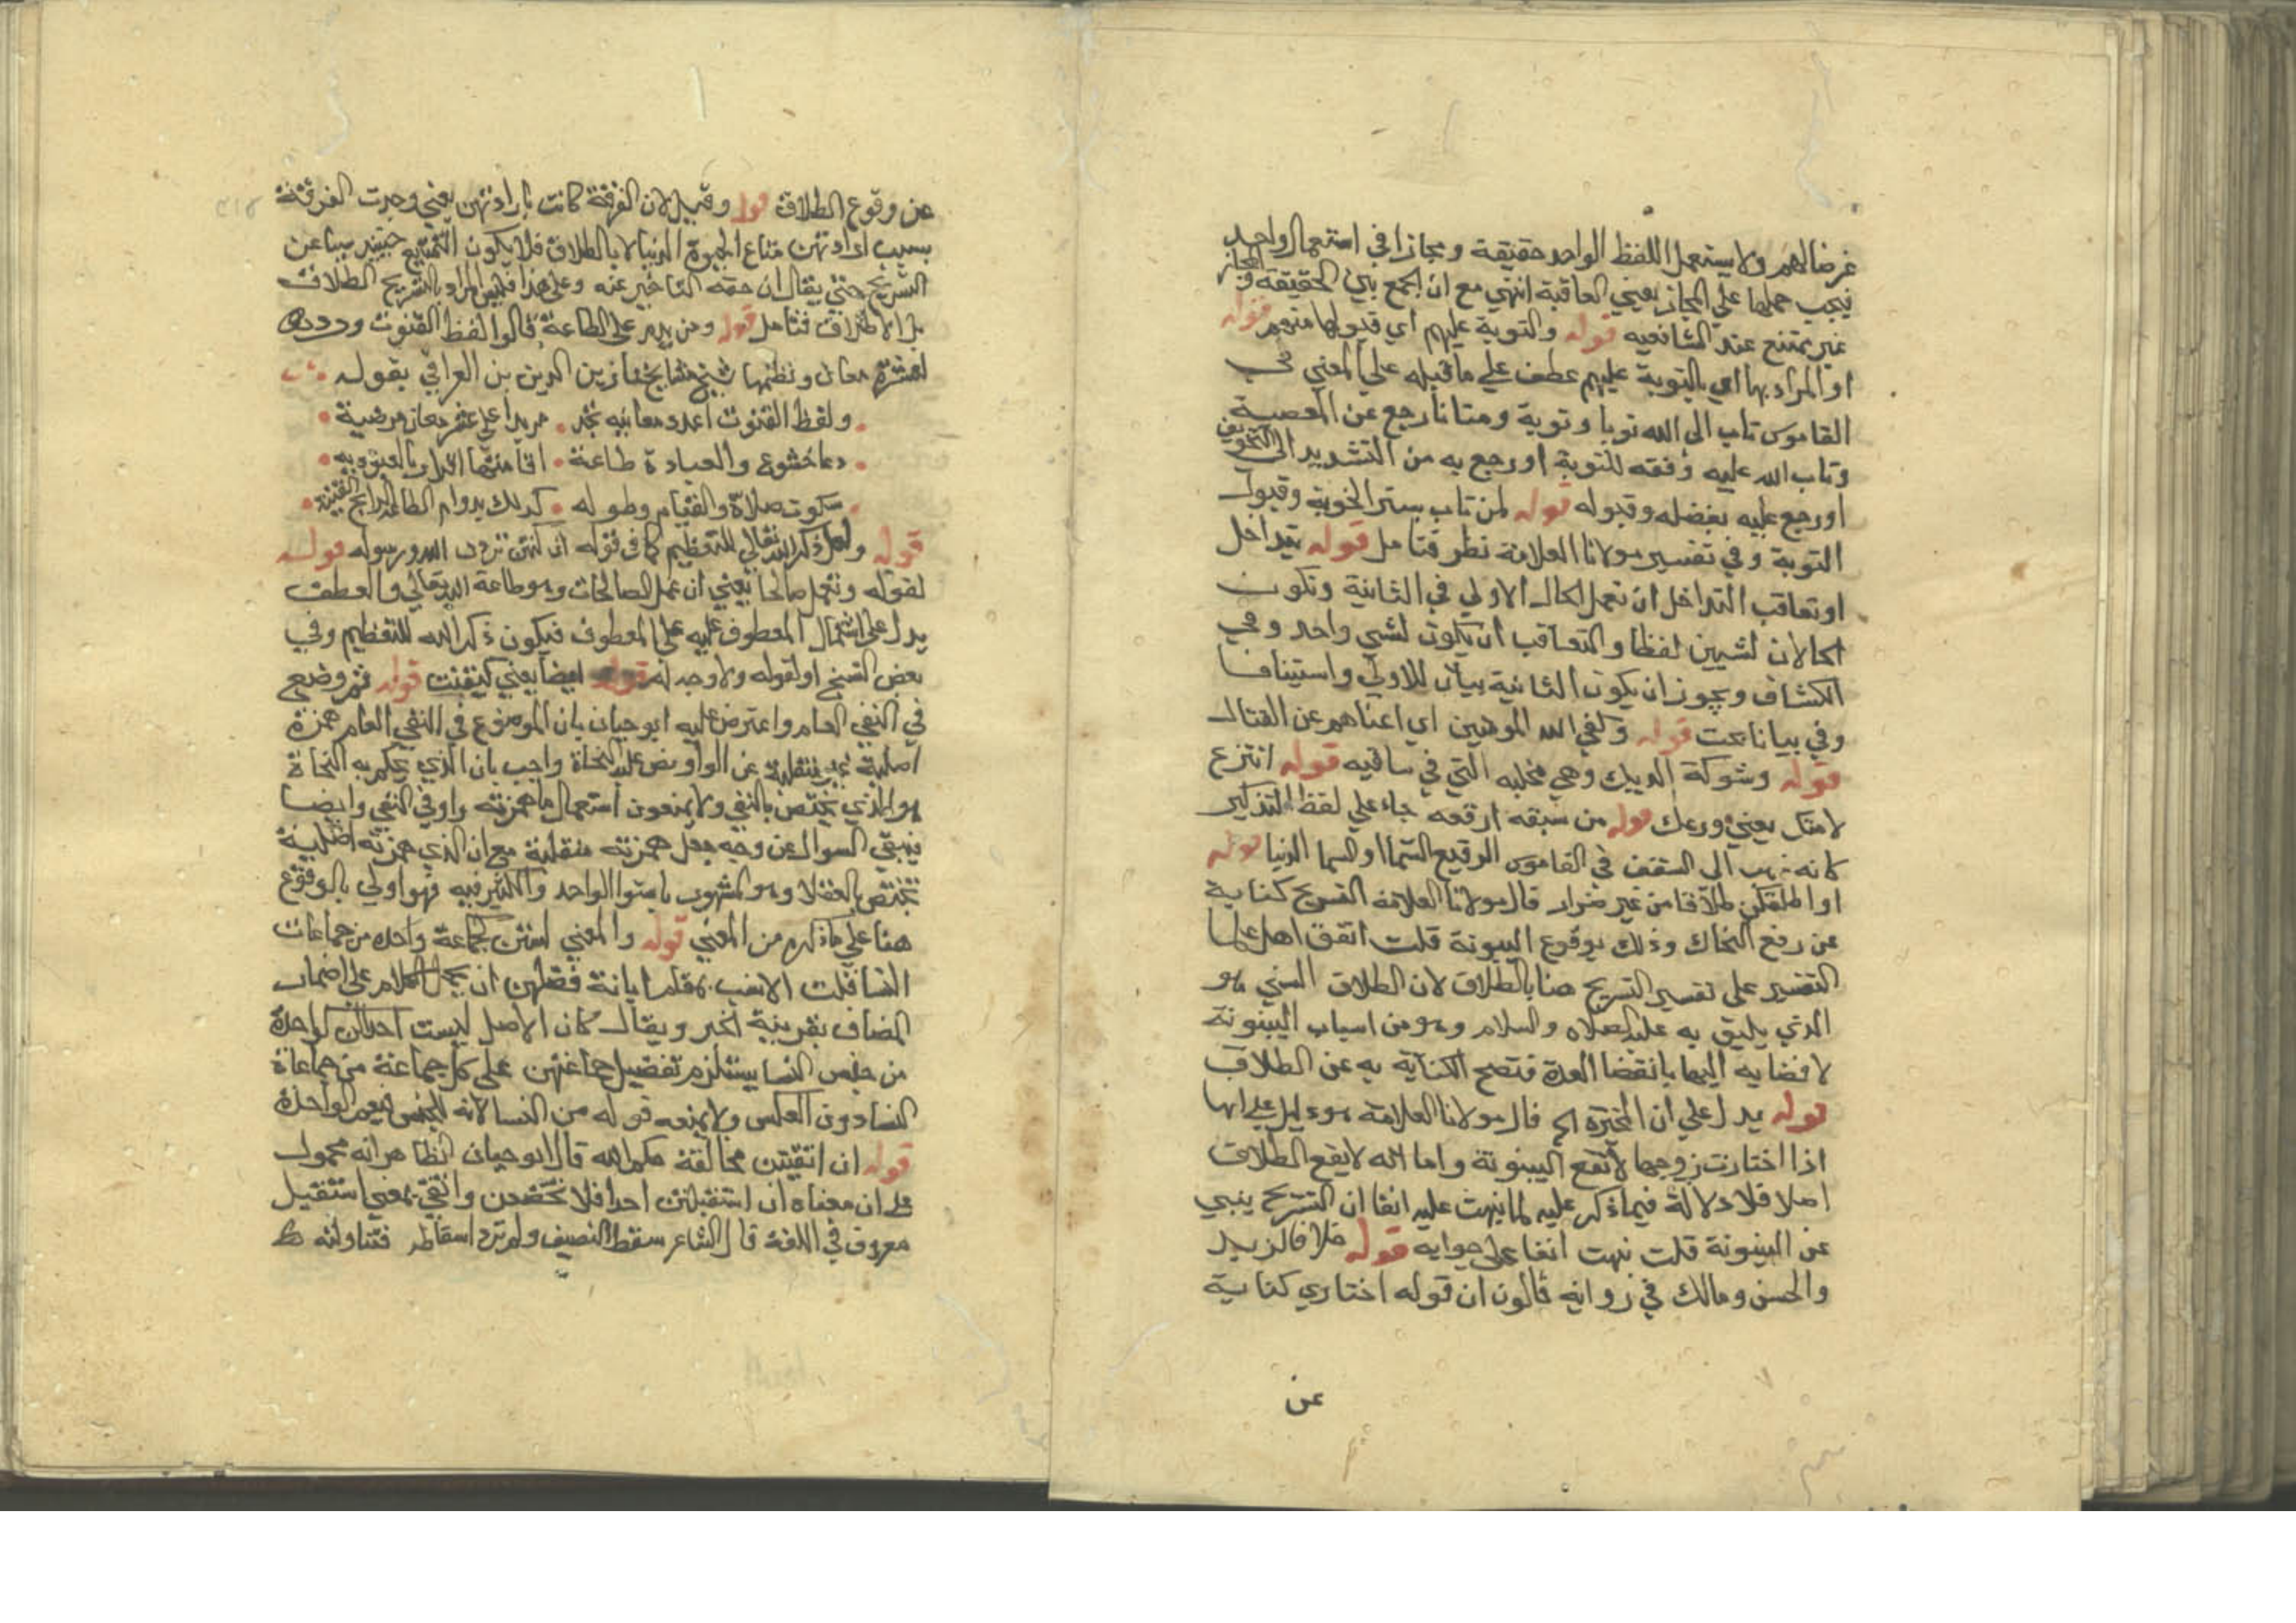 غرضا لهم ولا يستعمل اللفظ الواحد حقيقة ومجازا في استعمال واحد
فيجب حملها علي المجاز يعني العاقبة انتهي مع ان الجمع بين الحقيقة والمجاز
غير ممتنع عند الشافعيه قوله والتوبة عليهم اي قبولها منهم قوله
او المراد بها اي بالتوبة عليهم عطف علي ما قبله علي المعني في
القاموس تاب الي الله توبا وتوبة ومتابا رجع عن المعصية
وتاب الله عليه وفقه للتوبة او رجع به من التشديد الي التخفيف
او رجع عليه بفضله وقبوله قوله لمن تاب بستر الحوبة وقبول
التوبة وفي تفسير مولانا العلامة نظر فتامل قوله بتداخل
او تعاقب التداخل ان تعمل الحال الاولي في الثانية وتكون
الحالان لشيين لفظا والتعاقب ان يكون لشي واحد وفي
الكشاف ويجوز ان يكون الثانية بيان للاولي واستينافا
وفي بيانا بحث قوله وكفي الله المومنين اي اغناهم عن القتال
قوله وشوكة الديك وهي مخلبه التي في ساقيه قوله انتزع
لامتك يعني درعك قوله من سبقه ارقعه جاء علي لفظ التذكير
كانه ذهب الي السقف في القاموس الرقيع السما او السما الدنيا قوله
او اطلقكن طلاقا من غير ضرار قال مولانا العلامة التسريح كناية
عن رفع النكاح وذلك بوقوع البينونة قلت اتفق اهل علما
التفسير علي تفسير التسريح هنا بالطلاق لان الطلاق السني هو
الذي يليق به عليه الصلاه والسلام وهو من اسباب البينونة
لافضايه اليها بانقضا العدة فتصح الكناية به عن الطلاق
قوله يدل علي ان المخيرة الخ قال مولانا العلامة هو دليل علي انها
اذا اختارت زوجها لا تقع البينونة واما انه لا يقع الطلاق
اصلا فلا دلالة فيما ذكر عليه لما نبهت عليه انفا ان التسريح ينبي
عن البينونة قلت نبهت انفا علي جوابه قوله خلافا لزيد
والحسن ومالك في رواية قالون ان قوله اختاري كناية
عن
عن وقوع الطلاق قوله وقيل لان الفرقة كانت بارادتهن يعني وجدت الفرقة
بسبب ارادتهن متاع الحيوة الدنيا لا بالطلاق فلا يكون التمتيع حينيذ
التسريح حتي يقال ان حقه التاخير عنه وعلي هذا فليس المراد بالتسريح الطلاق
بل الاطلاق فتامل قوله ومن يدم علي الطاعة قالوا لفظ القنوت
لعشرة معان ونظمها شيخ مشايخنا زين الدين بن العراقي بقوله
ولفظ القنوت اعدد معانيه تجد مزيدا علي عشر معان مرضية
دعا خشوع والعبادة طاعة اقامتها اقرار بالعبوديه
سكوت صلاة والقيام وطوله كذلك دوام الطاعة الرابح القنية
قوله ولعل ذكر الله تعالي للتعظيم كما في قوله ان كنتن تردن الله ورسوله قوله
لقوله وتعمل صالحا يعني ان عمل الصالحات هو طاعة الله تعالي والعطف
يدل علي اشتمال المعطوف عليه علي المعطوف فيكون ذكر الله للتعظيم وفي
بعض النسخ او لقوله ولا وجه له قوله ايضا يعني كيقنت قوله ثم وضع
في النفي العام واعترض عليه ابو حيان بان الموضوع في النفي العام همزة
اصلية غير منقلبة عن الواو نص عليه النحاة واجيب بان الذي يحكم به النحاة
هو الذي يختص بالنفي ولا يمنعون استعمال ما همزته واو في النفي وايضا
فيبقي السوال عن وجه جعل همزته منقلبة مع ان الذي همزته اصلية
تختص بالعقلا وهو المشهور باستوا الواحد والكثير فيه فهو اولي بالوقوع
هنا علي ما ذكره من المعني قوله والمعني لستن كجماعة واحدة من جماعات
النسا قلت الانسب بمقام ابانة فضلهن ان يحمل الكلام علي اضمار
المضاف بقرينة الخبر ويقال كان الاصل ليست احداكن كواحدة
من جنس النسا يستلزم تفضيل جماعتهن علي كل جماعة من جماعات
النسا دون العكس ولا يمنعه قوله من النسا لانه للجنس فيعم الواحدة
قوله ان اتقيتن مخالفة حكم الله قال ابو حيان الظاهر انه محمول
علي ان معناه ان استقبلتن احدا فلا تخضعن واتقي بمعني استقبل
معروف في اللغة قال الشاعر سقط النصيف ولم ترد اسقاطه فتناولته